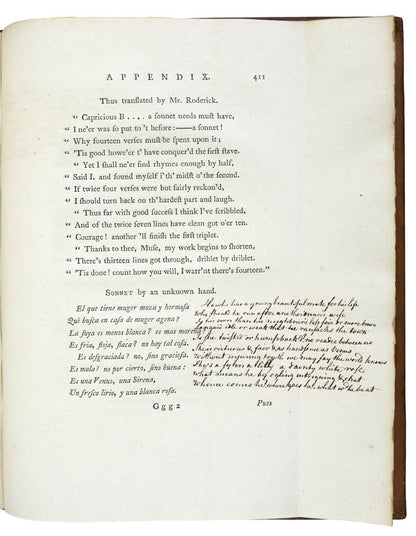 APPENDIX. 411
Thus translated by Mr. Roderick.
“ Capricious B . . . . a sonnet needs must have,
“ I ne'er was so put to 't before:——a sonnet!
“ Why fourteen verses must be spent upon it;
“ 'Tis good howe'er t' have conquer'd the first stave.
“ Yet I shall ne'er find rhymes enough by half,
“ Said I, and found myself i' th' midst o' the second.
“ If twice four verses were but fairly reckon'd,
“ I should turn back on th' hardest part and laugh.
“ Thus far with good success I think I've scribled,
“ And of the twice seven lines have clean got o'er ten.
“ Courage! another 'll finish the first triplet.
“ Thanks to thee, Muse, my work begins to shorten,
“ There's thirteen lines got through, driblet by driblet.
“ 'Tis done! count how you will, I warr'nt there's fourteen.”
SONNET by an unknown hand.
El que tiene muger moza y hermosa
Què busca en casa de muger agena?
La suya es menos blanca? es mas morena
Es fria, floja, flaca? no hay tal cosa.
Es desgraciada? no, sino graciosa.
Es mala? no por cierto, sino buena:
Es una Venus, una Sirena,
Un fresco lirio, y una blanca rosa.
has a young beautiful mate for his life
Why should he run after
his own
or weak that he the town
Is she twisted or humpback
handsome as Venus
Without injuring truth we may say the world knows
a lilly a dainty white rose
what means he by ogling intriguing & chat
Whence comes he
Ggg 2 Pues